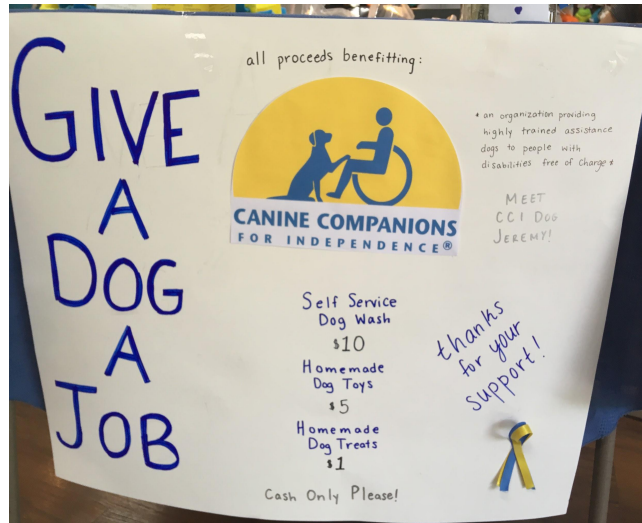 GIVE
A
DOG
A
JOB
all proceeds benefitting:
CANINE COMPANIONS
FOR INDEPENDENCE®
* an organization providing
highly trained assistance
dogs to people with
disabilities free of charge *
MEET
CCI DOG
JEREMY!
Self Service
Dog Wash
$10
Homemade
Dog Toys
$5
Homemade
Dog Treats
$1
Cash Only Please!
thanks
for your
support!